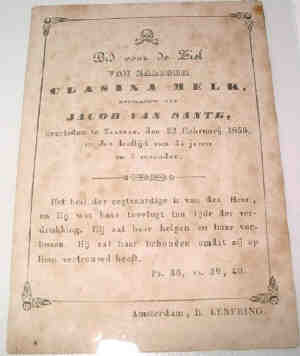 Bid voor de Ziel
VAN ZALIGER
CLASINA MELK,
JACOB VAN SANTE,
overleden te den 23 Februarij
in den leeftijd van jaren
en maanden.
Het heil der regtvaardige is van den Heer,
en Hij was hare toevlugt ten tijde der ver-
drukking. Hij zal haar helpen en haar ver-
lossen. Hij zal haar behouden omdat zij op
Hem vertrouwd heeft.
Ps. 36, vs. 39, 40.
Amsterdam, B. LENFRING.